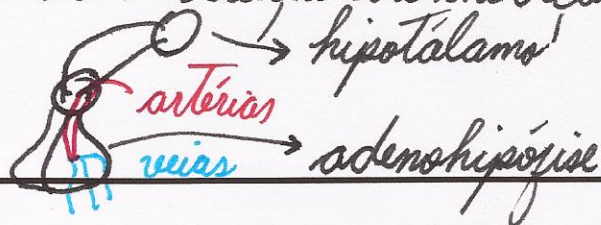 hipotálamo
artérias
veias adenohipófise